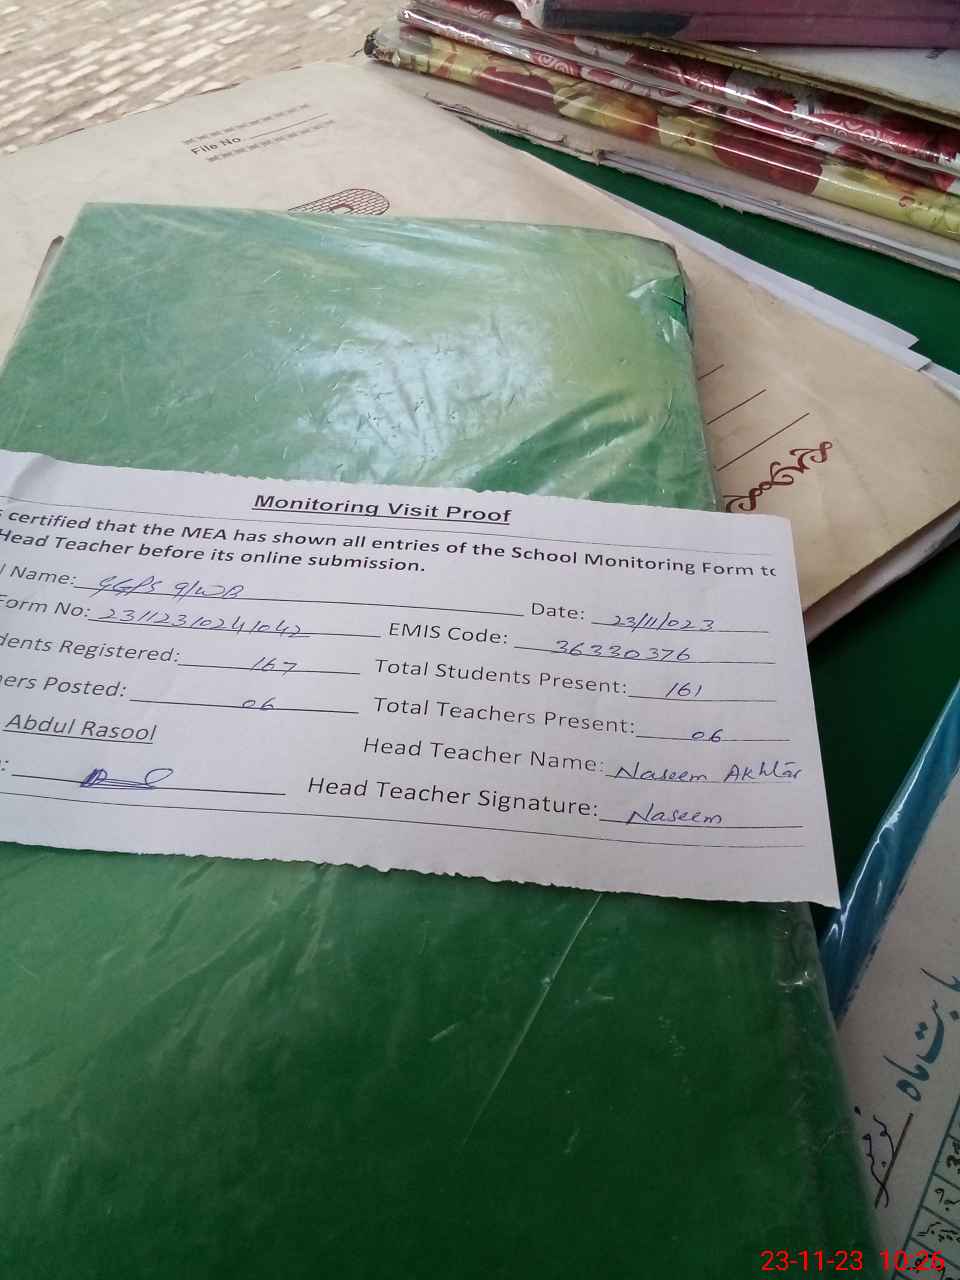 File No.
Monitoring Visit Proof
s certified that the MEA has shown all entries of the School Monitoring Form to
Head Teacher before its online submission.
l Name: GGPS 9/WB Date: 23/11/023
Form No: 23112310241042 EMIS Code: 36330376
dents Registered: 167 Total Students Present: 161
ers Posted: 06 Total Teachers Present: 06
Abdul Rasool Head Teacher Name: Naseem Akhtar
: Head Teacher Signature: Naseem
بابت ماہ نومبر
23-11-23 10:26